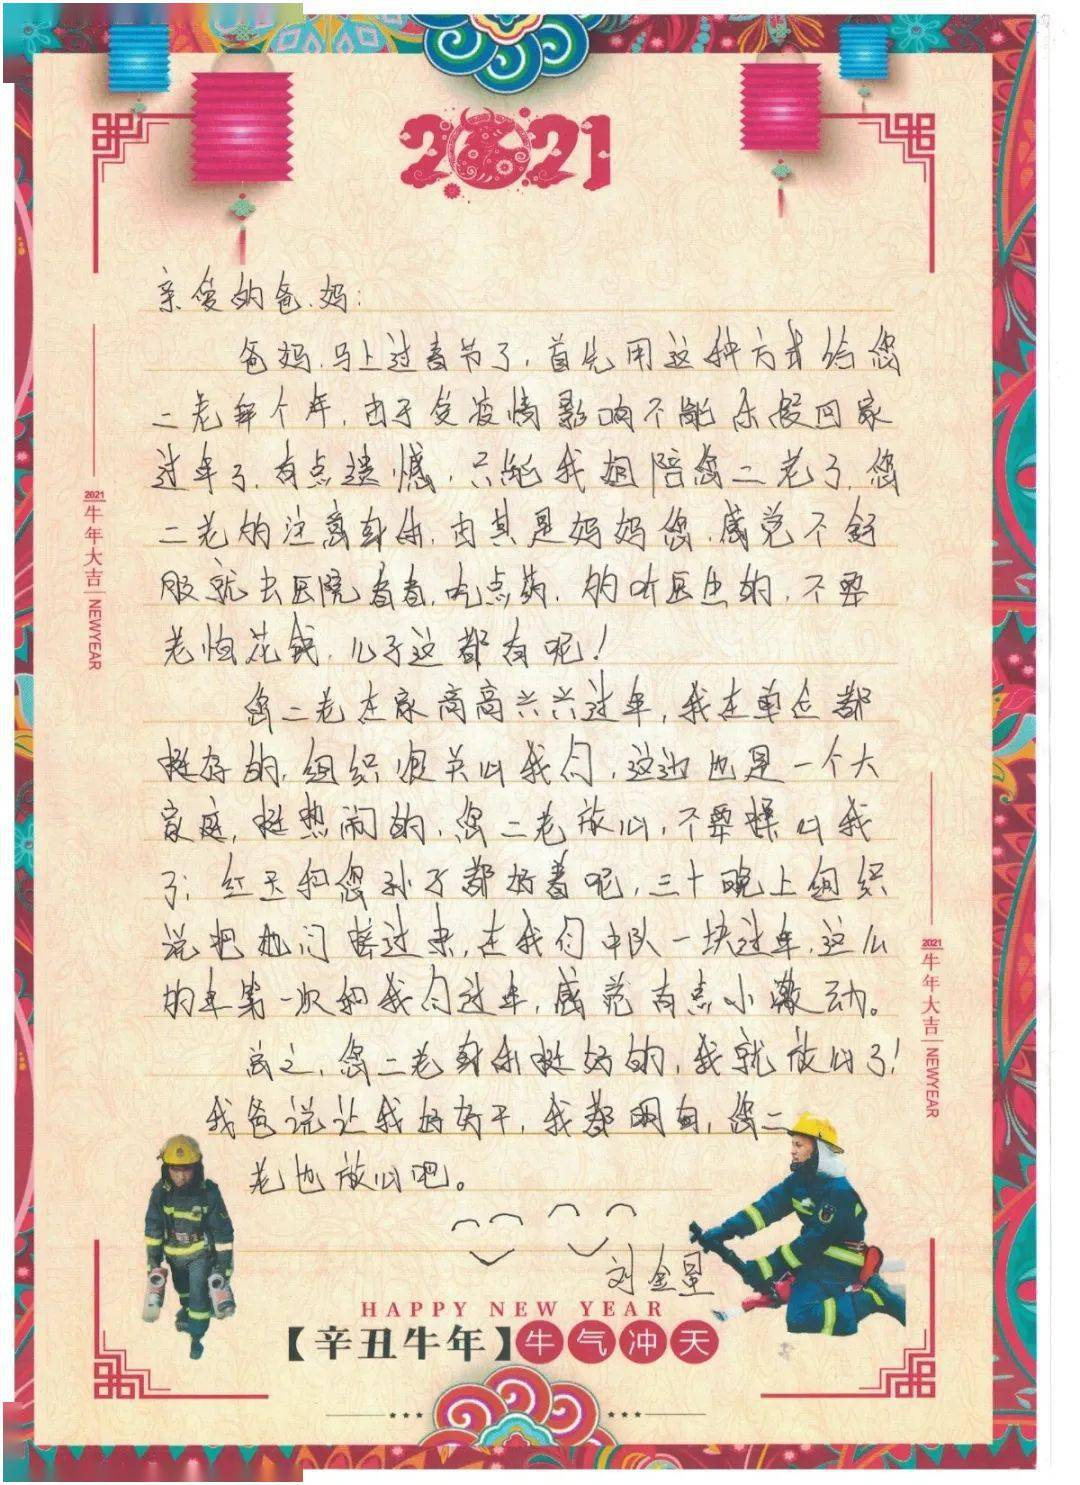 2021
亲爱的爸、妈：
爸妈，马上过春节了，首先用这种方式给您
二老拜个年，由于受疫情影响不能休假回家
过年了，有点遗憾，只能我姐陪您二老了，您
二老的注意身体，由其是妈妈您，感觉不舒
服就去医院看看，吃点药，的听医生的，不要
老怕花钱，儿子这都有呢！
您二老在家高高兴兴过年，我在单位都
挺好的，组织很关心我们，这边也是一个大
家庭，挺热闹的，您二老放心，不要操心我
了；红玉和您孙子都好着呢，三十晚上组织
说把她们接过来，在我们中队一块过年，这么
的年第一次和我们过年，感觉有点小激动。
总之，您二老身体挺好的，我就放心了！
我爸说让我好好干，我都明白，您二
老也放心吧。
刘金星
2021
牛年大吉
NEWYEAR
2021
牛年大吉
NEWYEAR
HAPPY NEW YEAR
【辛丑牛年】牛气冲天